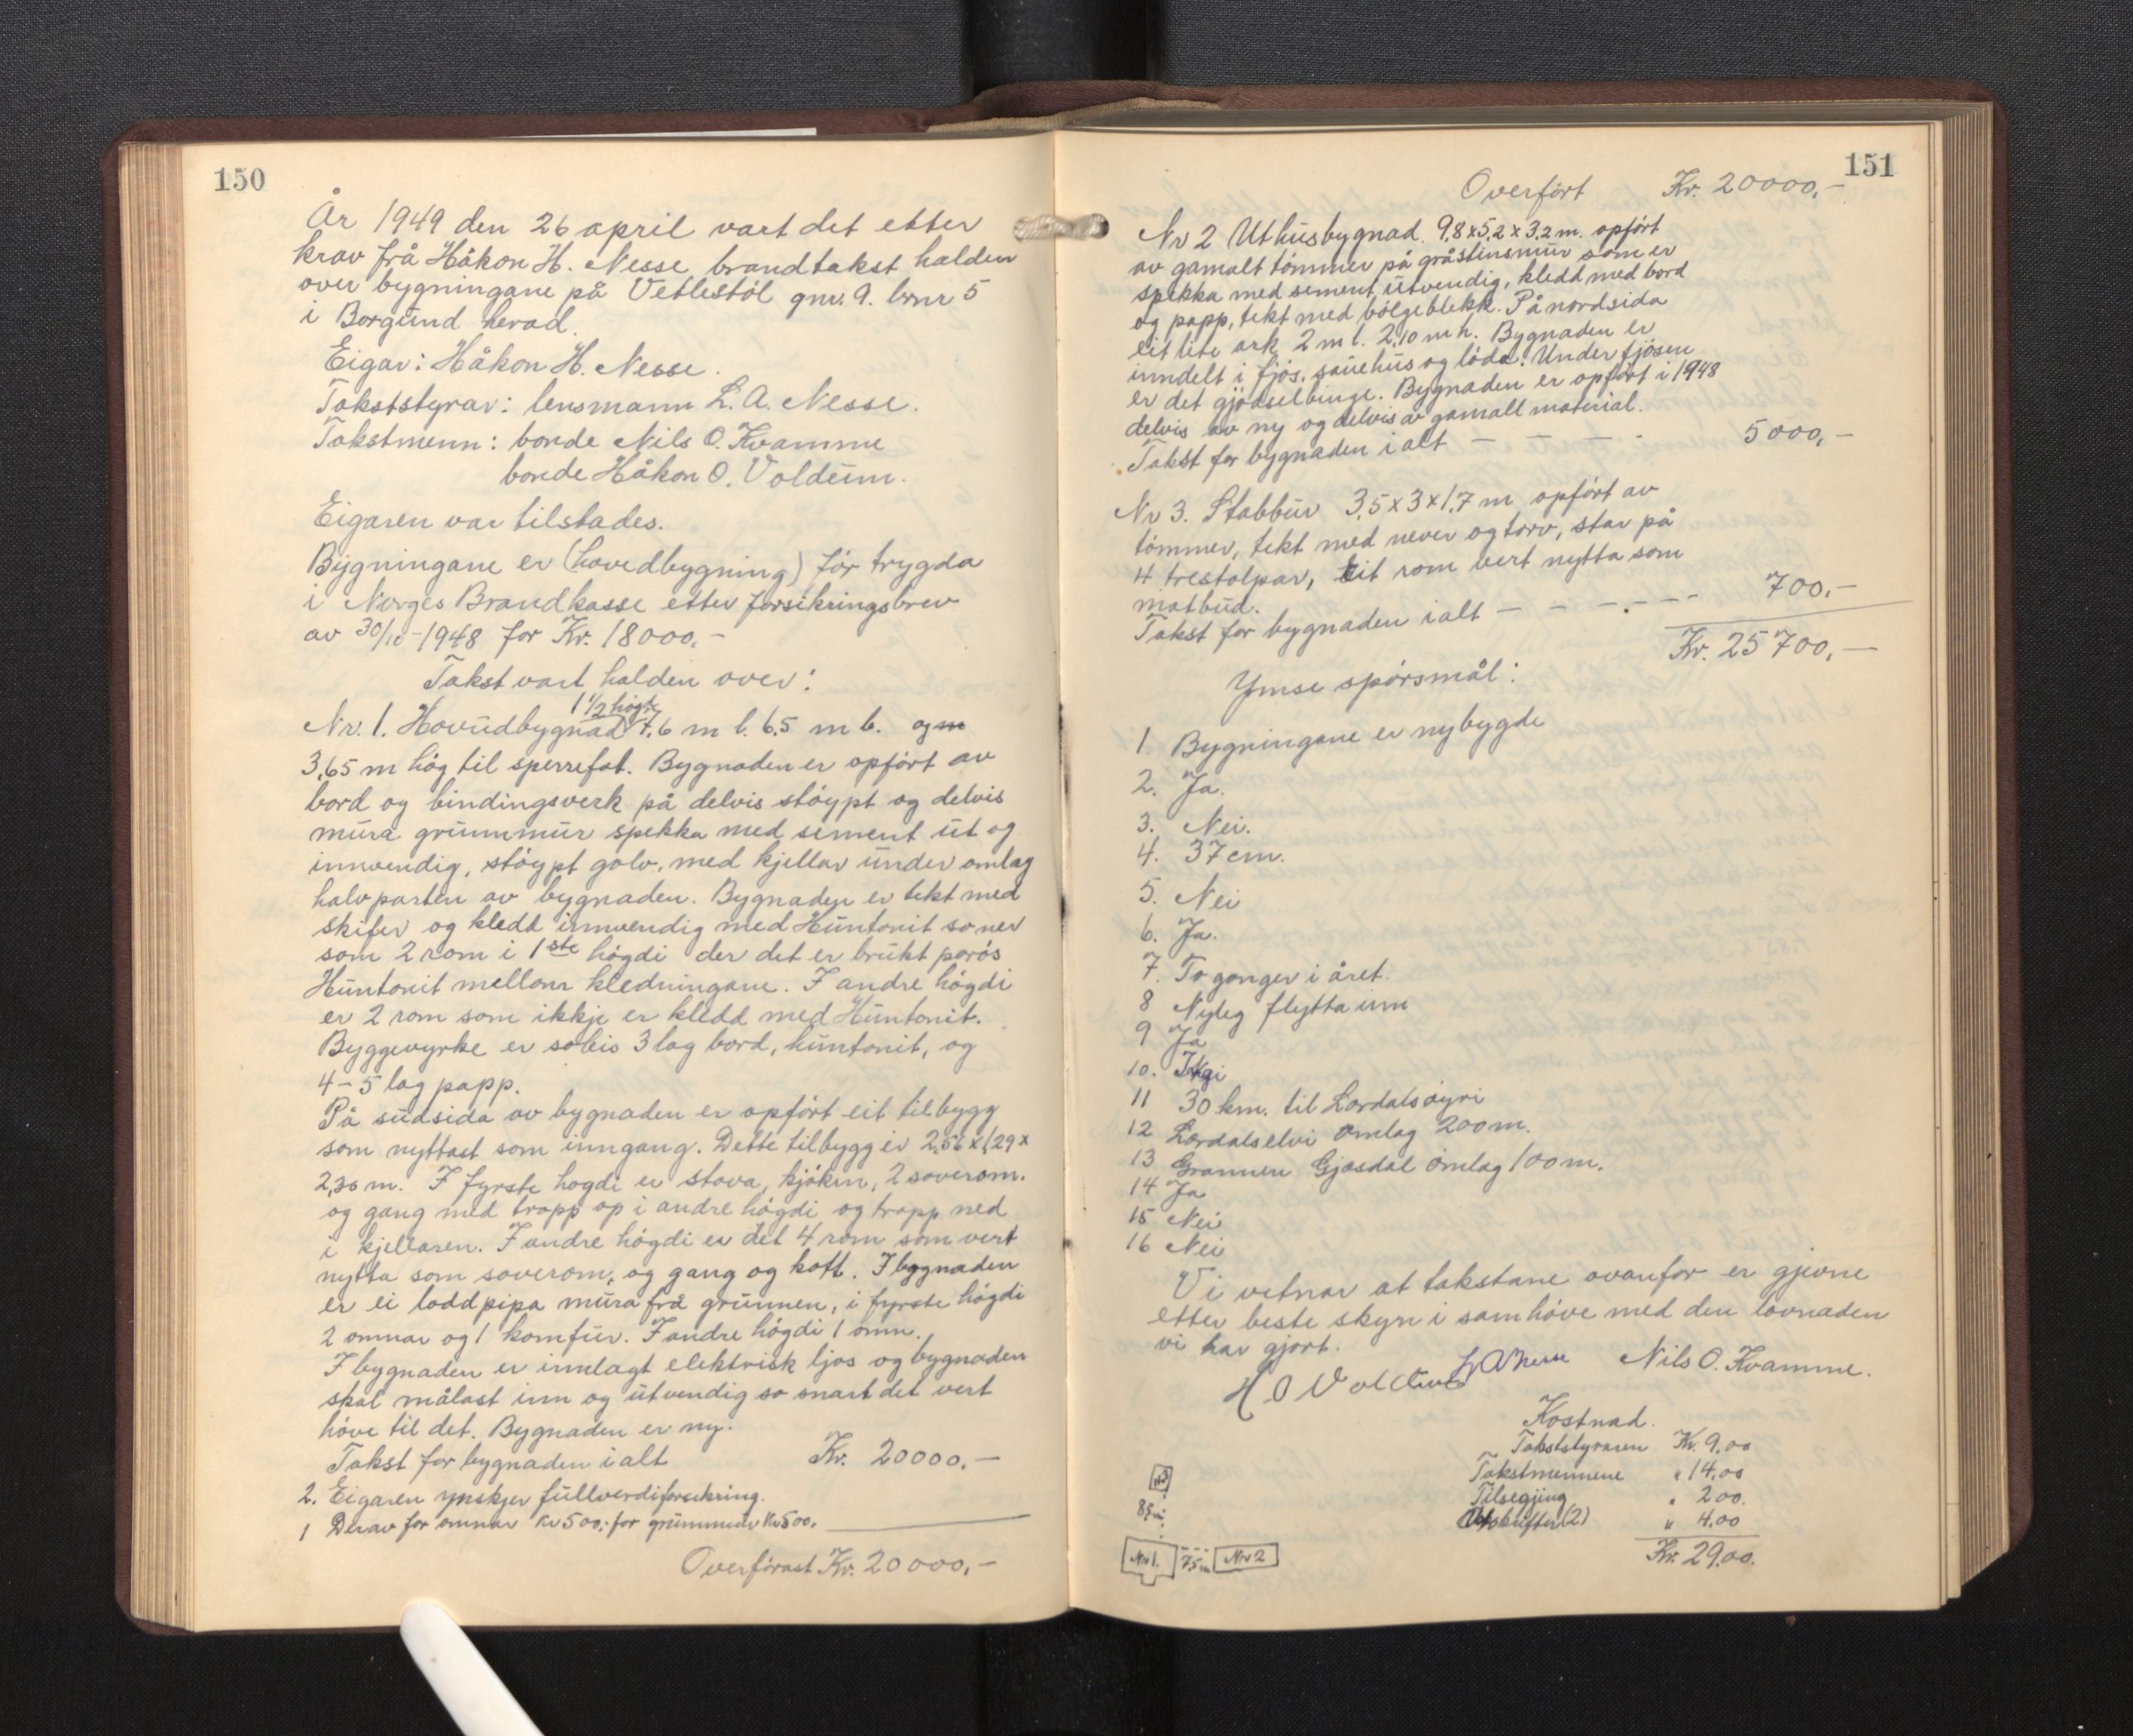 150
År 1949 den 26 april vart det etter
krav frå Håkon H. Nesse brandtakst halden
over bygningane på Vetlestöl gnr. 9. brnr 5
i Borgund herad.
Eigar: Håkon H. Nesse.
Takststyrar: lensmann L. A. Nesse.
Takstmenn: bonde Nils O. Kvamme
bonde Håkon O. Voldum.
Eigaren var tilstades.
Bygningane er (hovedbygning) för trygda
i Norges Brandkasse etter forsikringsbrev
av 30/10-1948 for Kr. 18000,-
Takst vart halden over:
1 1/2 högt
Nr. 1. Hovudbygnad 7,6 m l. 6,5 m b. og
3,65 m hög til sperrefot. Bygnaden er opfört av
bord og bindingsverk på delvis stöypt og delvis
mura grunnmur spekka med sement ut og
innvendig, stöypt golv, med kjellar under omlag
halvparten av bygnaden. Bygnaden er tekt med
skifer og kledd innvendig med Huntonit so ner
som 2 rom i 1ste högdi der det er brukt porös
Huntonit mellom kledningane. I andre högdi
er 2 rom som ikkje er kledd med Huntonit.
Byggevyrke er soleis 3 lag bord, huntonit, og
4-5 lag papp.
På sudsida av bygnaden er opfört eit tilbygg
som nyttast som inngang. Dette tilbygg er 2,56 x 1,29 x
2,30 m. I fyrste högdi er stova, kjöken, 2 soverom.
og gang med tropp op i andre högdi og tropp ned
i kjellaren. I andre högdi er det 4 rom som vert
nytta som soverom, og gang og kott. I bygnaden
er ei loddpipa mura frå grunnen, i fyrste högdi
2 omnar og 1 komfur. I andre högdi 1 omn.
I bygnaden er innlagt elektrisk ljos og bygnaden
skal målast inn og utvendig so snart det vert
höve til det. Bygnaden er ny.
Takst for bygnaden i alt Kr. 20000,-
2. Eigaren ynskjer fullverdiforsikring.
1 Derav for omnar Kr 500,- for grunnmur Kr 500,
Overförast Kr. 20000,-
151
Overfört Kr. 20000,-
Nr 2 Uthusbygnad. 9,8 x 5,2 x 3,2 m. opfört
av gamalt tömmer på gråstinsmur som er
spekka med sement utvendig, kledd med bord
og papp, tekt med bölgeblekk. På nordsida
eit lite ark 2 m l. 2,10 m h. Bygnaden er
inndelt i fjös, sauehus og löda. Under fjösen
er det gjödselbinge. Bygnaden er opfört i 1948
delvis av ny og delvis av gamall material.
Takst for bygnaden i alt - - - - 5000,-
Nr 3. Stabbur 3,5 x 3 x 1,7 m opfört av
tömmer, tekt med never og torv, star på
4 trestolpar, eit rom vert nytta som
matbud.
Takst for bygnaden ialt - - - - - 700,-
Kr. 25700,-
Ymse spörsmål:
1. Bygningane er nybygde
2. Ja.
3. Nei.
4. 37 cm.
5. Nei
6. Ja.
7. To gonger i året.
8 Nyleg flytta inn
9 Ja
10.
11 30 km. til Lærdalsöyri
12 Lærdalselvi omlag 200 m.
13 Grannen Gjøsdal omlag 100 m.
14 Ja
15 Nei
16 Nei
Vi vetnar at takstane ovanfor er gjevne
etter beste skyn i samhöve med den lovnaden
vi har gjort.
H O Voldum L A Nesse Nils O. Kvamme.
Kostnad.
Takststyraren Kr. 9,00
Takstmennene " 14,00
Tilsegjing " 2 00.
Utskrifter (2) " 4,00
Kr. 29,00.
Nr 3
85 m
Nr 1. 75 m Nr 2